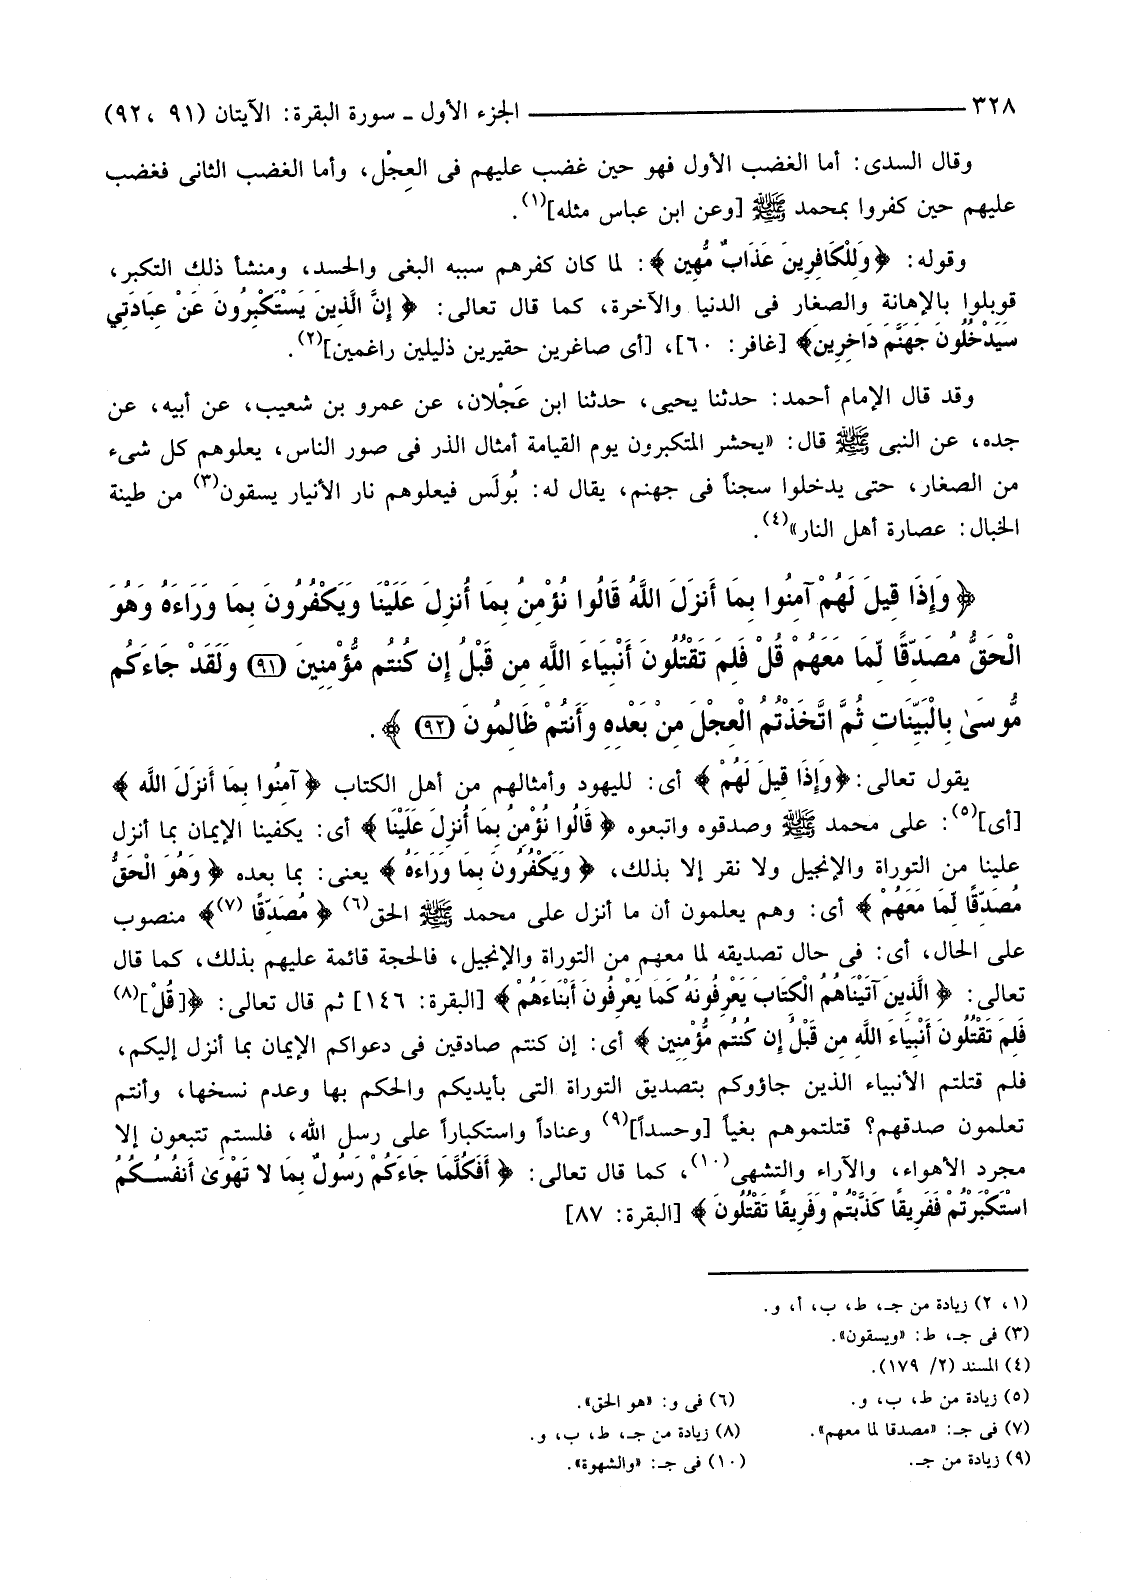 ٣٢٨ ــــــــــــــــ الجزء الأول ـ سورة البقرة: الآيتان (٩١ ، ٩٢)
وقال السدى: أما الغضب الأول فهو حين غضب عليهم فى العِجْل، وأما الغضب الثانى فغضب
عليهم حين كفروا بمحمد ﷺ [وعن ابن عباس مثله](١).
وقوله: ﴿وَلِلْكَافِرِينَ عَذَابٌ مُّهِين﴾: لما كان كفرهم سببه البغى والحسد، ومنشأ ذلك التكبر،
قوبلوا بالإهانة والصغار فى الدنيا والآخرة، كما قال تعالى: ﴿ إِنَّ الَّذِينَ يَسْتَكْبِرُونَ عَنْ عِبَادَتِي
سَيَدْخُلُونَ جَهَنَّمَ دَاخِرِينَ﴾ [غافر: ٦٠]، [أى صاغرين حقيرين ذليلين راغمين](٢).
وقد قال الإمام أحمد: حدثنا يحيى، حدثنا ابن عَجْلان، عن عمرو بن شعيب، عن أبيه، عن
جده، عن النبى ﷺ قال: «يحشر المتكبرون يوم القيامة أمثال الذر فى صور الناس، يعلوهم كل شىء
من الصغار، حتى يدخلوا سجناً فى جهنم، يقال له: بُولَس فيعلوهم نار الأنيار يسقون(٣) من طينة
الخبال: عصارة أهل النار»(٤).
﴿ وَإِذَا قِيلَ لَهُمْ آمِنُوا بِمَا أَنزَلَ اللَّهُ قَالُوا نُؤْمِنُ بِمَا أُنزِلَ عَلَيْنَا وَيَكْفُرُونَ بِمَا وَرَاءَهُ وَهُوَ
الْحَقُّ مُصَدِّقًا لِّمَا مَعَهُمْ قُلْ فَلِمَ تَقْتُلُونَ أَنْبِيَاءَ اللَّهِ مِن قَبْلُ إِن كُنتُم مُّؤْمِنِينَ (٩١) وَلَقَدْ جَاءَكُم
مُّوسَىٰ بِالْبَيِّنَاتِ ثُمَّ اتَّخَذْتُمُ الْعِجْلَ مِنْ بَعْدِهِ وَأَنتُمْ ظَالِمُونَ (٩٢) ﴾.
يقول تعالى: ﴿وَإِذَا قِيلَ لَهُمْ ﴾ أى: لليهود وأمثالهم من أهل الكتاب ﴿ آمِنُوا بِمَا أَنزَلَ اللَّه ﴾
[أى](٥): على محمد ﷺ وصدقوه واتبعوه ﴿ قَالُوا نُؤْمِنُ بِمَا أُنزِلَ عَلَيْنَا ﴾ أى: يكفينا الإيمان بما أنزل
علينا من التوراة والإنجيل ولا نقر إلا بذلك، ﴿ وَيَكْفُرُونَ بِمَا وَرَاءَهُ ﴾ يعنى: بما بعده ﴿ وَهُوَ الْحَقُّ
مُصَدِّقًا لِّمَا مَعَهُمْ ﴾ أى: وهم يعلمون أن ما أنزل على محمد ﷺ الحق(٦) ﴿ مُصَدِّقًا (٧)﴾ منصوب
على الحال، أى: فى حال تصديقه لما معهم من التوراة والإنجيل، فالحجة قائمة عليهم بذلك، كما قال
تعالى: ﴿ الَّذِينَ آتَيْنَاهُمُ الْكِتَابَ يَعْرِفُونَهُ كَمَا يَعْرِفُونَ أَبْنَاءَهُمْ ﴾ [البقرة: ١٤٦] ثم قال تعالى: ﴿[قُلْ](٨)
فَلِمَ تَقْتُلُونَ أَنْبِيَاءَ اللَّهِ مِن قَبْلُ إِن كُنتُم مُّؤْمِنِين ﴾ أى: إن كنتم صادقين فى دعواكم الإيمان بما أنزل إليكم،
فلم قتلتم الأنبياء الذين جاؤوكم بتصديق التوراة التى بأيديكم والحكم بها وعدم نسخها، وأنتم
تعلمون صدقهم؟ قتلتموهم بغياً [وحسداً](٩) وعناداً واستكباراً على رسل الله، فلستم تتبعون إلا
مجرد الأهواء، والآراء والتشهى(١٠)، كما قال تعالى: ﴿ أَفَكُلَّمَا جَاءَكُمْ رَسُولٌ بِمَا لا تَهْوَىٰ أَنفُسُكُمُ
اسْتَكْبَرْتُمْ فَفَرِيقًا كَذَّبْتُمْ وَفَرِيقًا تَقْتُلُونَ ﴾ [البقرة: ٨٧]
(١، ٢) زيادة من جـ، ط، ب، أ، و.
(٣) فى جـ، ط: «ويسقون».
(٤) المسند (٢/ ١٧٩).
(٥) زيادة من ط، ب، و. (٦) فى و: «هو الحق».
(٧) فى جـ: «مصدقا لما معهم». (٨) زيادة من جـ، ط، ب، و.
(٩) زيادة من جـ. (١٠) فى جـ: «والشهوة».